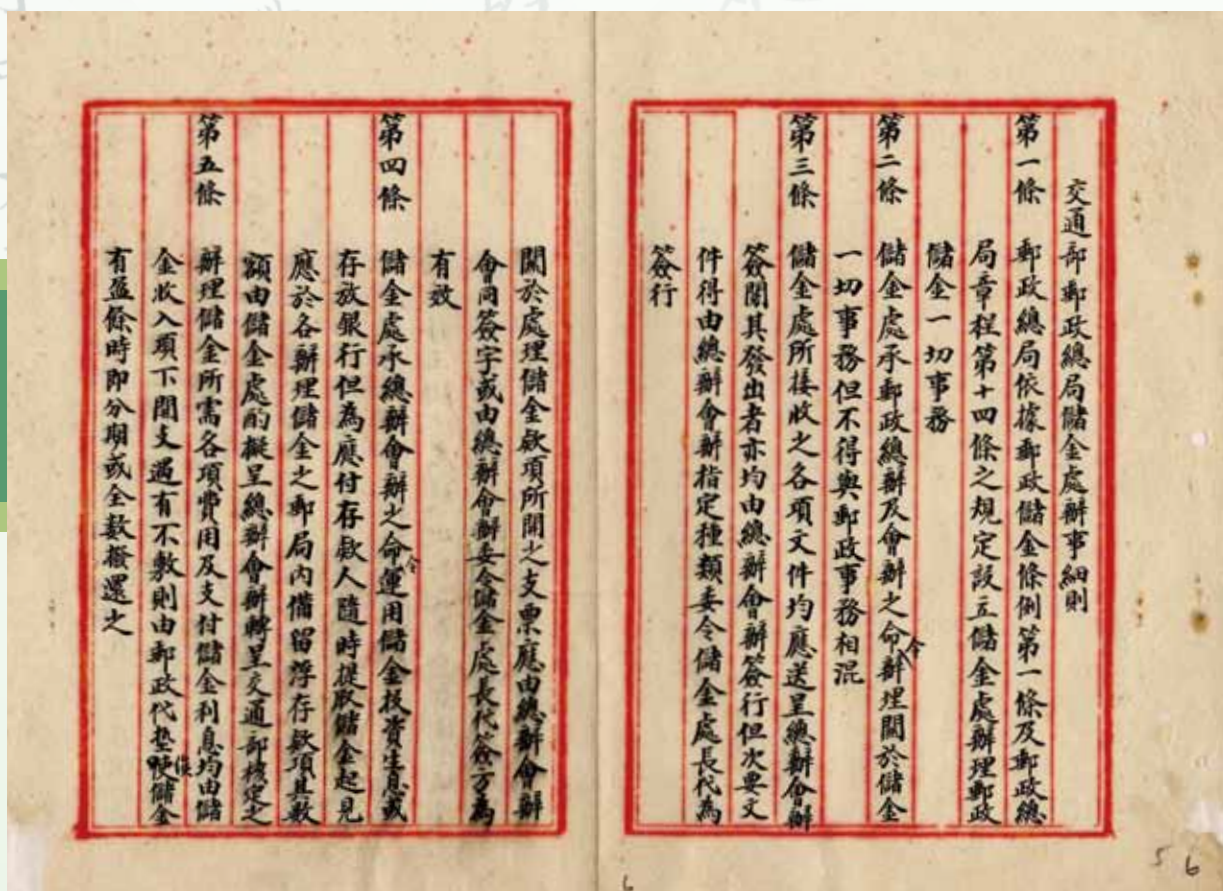 交通部郵政總局儲金處辦事細則
第一條 郵政總局依據郵政儲金條例第一條及郵政總
局章程第十四條之規定設立儲金處辦理郵政
儲金一切事務
第二條 儲金處承郵政總辦及會辦之命令辦理關於儲金
一切事務但不得與郵政事務相混
第三條 儲金處所接收之各項文件均應送呈總辦會辦
簽閱其發出者亦均由總辦會辦簽行但次要文
件得由總辦會辦指定種類委令儲金處長代為
簽行
關於處理儲金款項所開之支票應由總辦會辦
會同簽字或由總辦會辦委令儲金處長代簽方為
有效
第四條 儲金處承總辦會辦之命令運用儲金投資生息或
存放銀行但為應付存款人隨時提取儲金起見
應於各辦理儲金之郵局內備留浮存款項其數
額由儲金處酌擬呈總辦會辦轉呈交通部核定之
第五條 辦理儲金所需各項費用及支付儲金利息均由儲
金收入項下開支遇有不敷則由郵政代墊俟儲金
有盈餘時即分期或全數撥還之
5 6
6